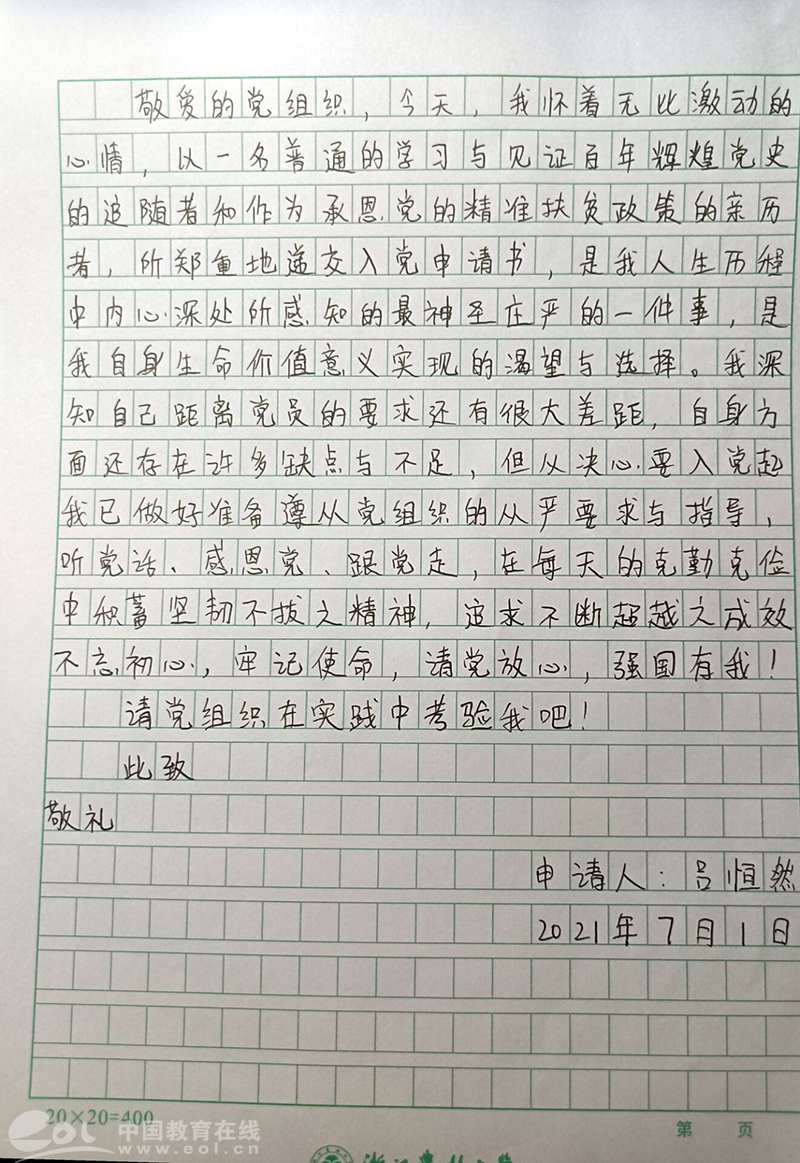 敬爱的党组织，今天，我怀着无比激动的
心情，以一名普通的学习与见证百年辉煌党史
的追随者和作为承恩党的精准扶贫政策的亲历
者，所郑重地递交入党申请书，是我人生历程
中内心深处所感知的最神圣庄严的一件事，是
我自身生命价值意义实现的渴望与选择。我深
知自己距离党员的要求还有很大差距，自身方
面还存在许多缺点与不足，但从决心要入党起
我已做好准备遵从党组织的从严要求与指导，
听党话、感恩党、跟党走，在每天的克勤克俭
中积蓄坚韧不拔之精神，追求不断超越之成效
不忘初心，牢记使命，请党放心，强国有我！
请党组织在实践中考验我吧！
此致
敬礼
申请人：吕恒然
2021年7月1日
20×20=400
第 页
eol 中国教育在线
www.eol.cn